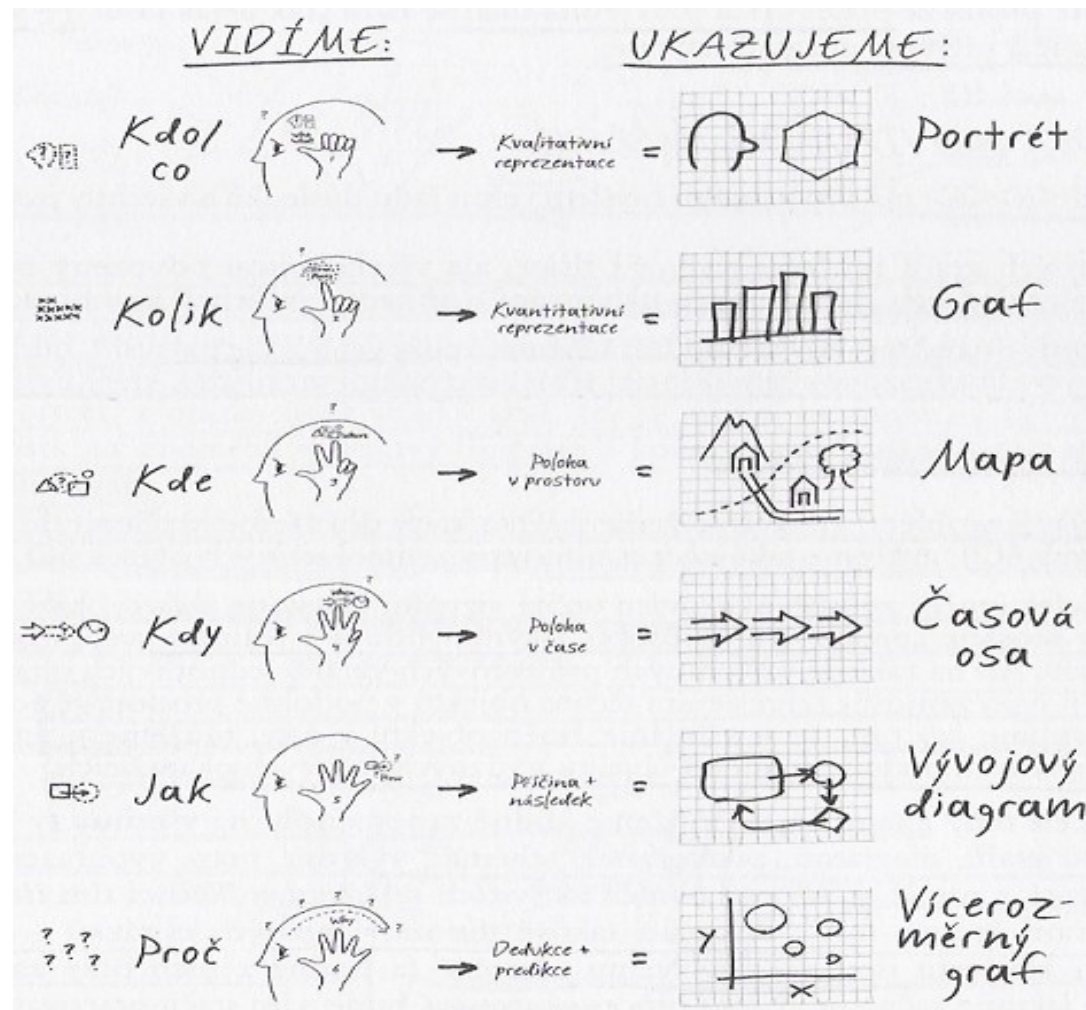 VIDÍME: UKAZUJEME:
Kdo/
co
Kvalitativní
reprezentace
=
Portrét
Kolik
Kvantitativní
reprezentace
=
Graf
Kde
Poloha
v prostoru
=
Mapa
Kdy
Poloha
v čase
=
Časová
osa
Jak
Příčina +
následek
=
Vývojový
diagram
? ? ?
? ? ?
Proč
Dedukce +
predikce
=
Y
X
Víceroz-
měrný
graf